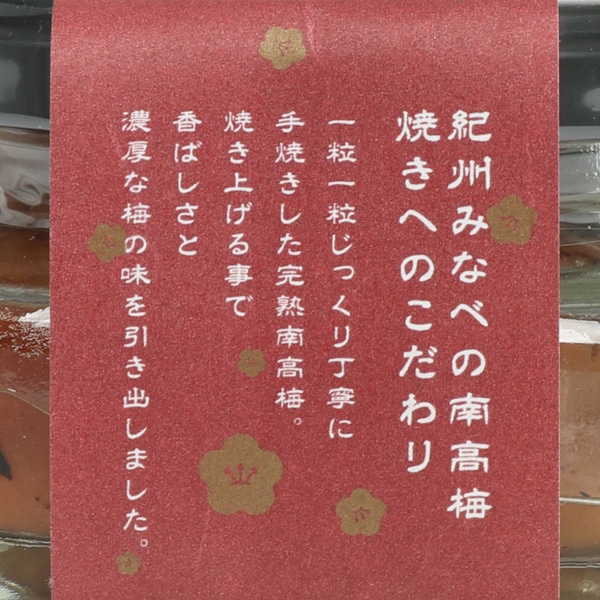 紀州みなべの南高梅
焼きへのこだわり
一粒一粒じっくり丁寧に
手焼きした完熟南高梅。
焼き上げる事で
香ばしさと
濃厚な梅の味を引き出しました。